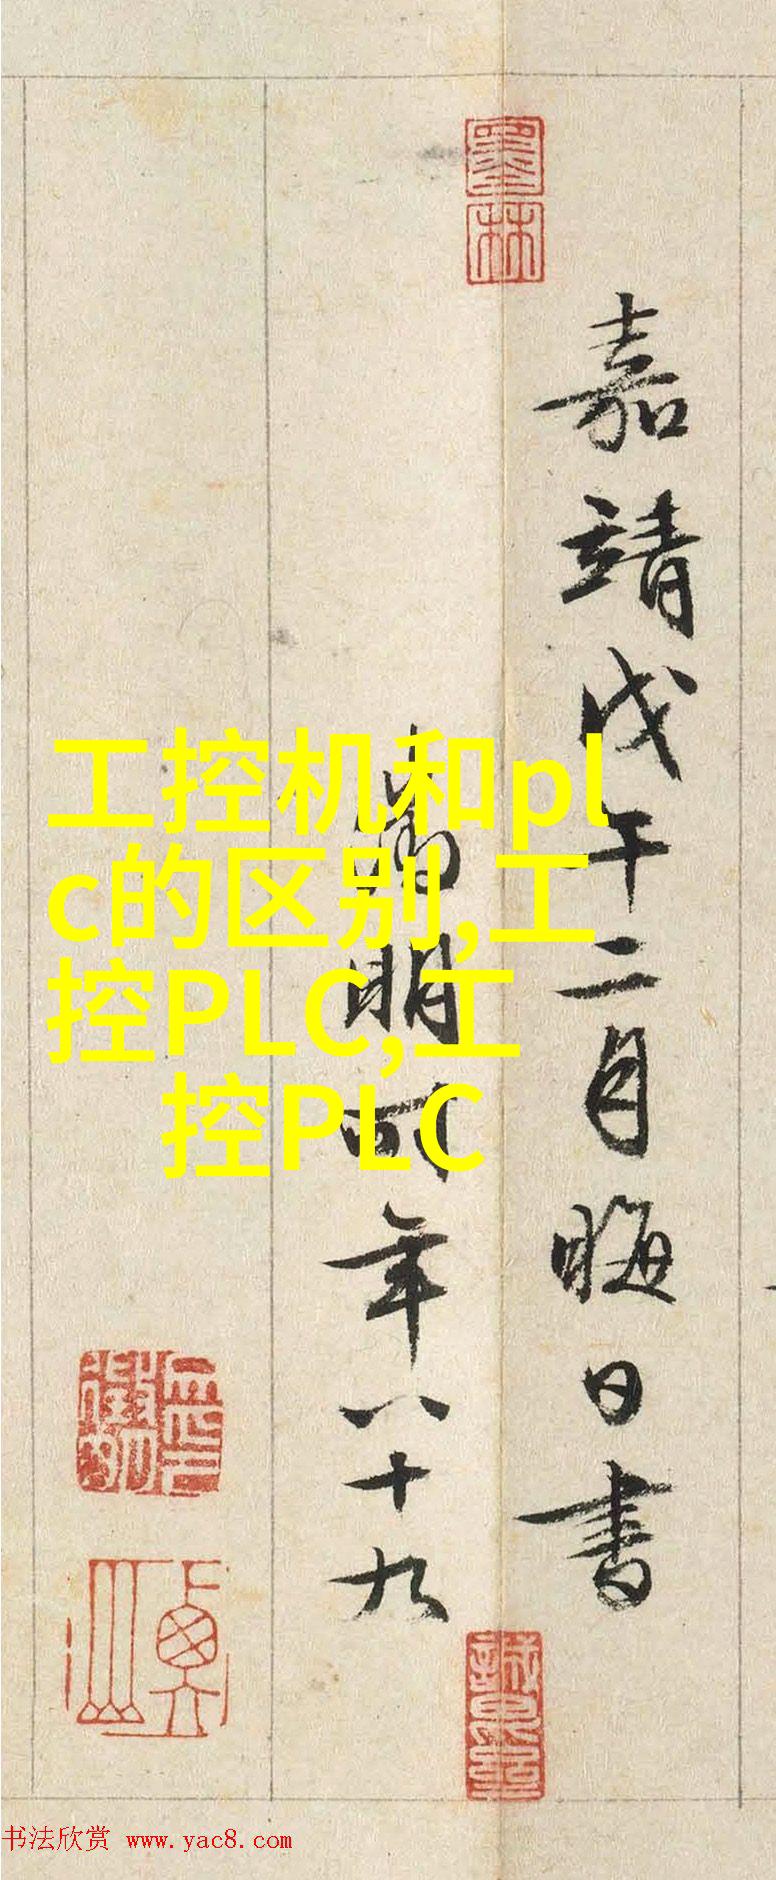 嘉靖戊午二月晦日书
徵明时年八十九
工控机和pl
c的区别,工
控PLC,工
控PLC
墨林
书法欣赏 www.yac8.com